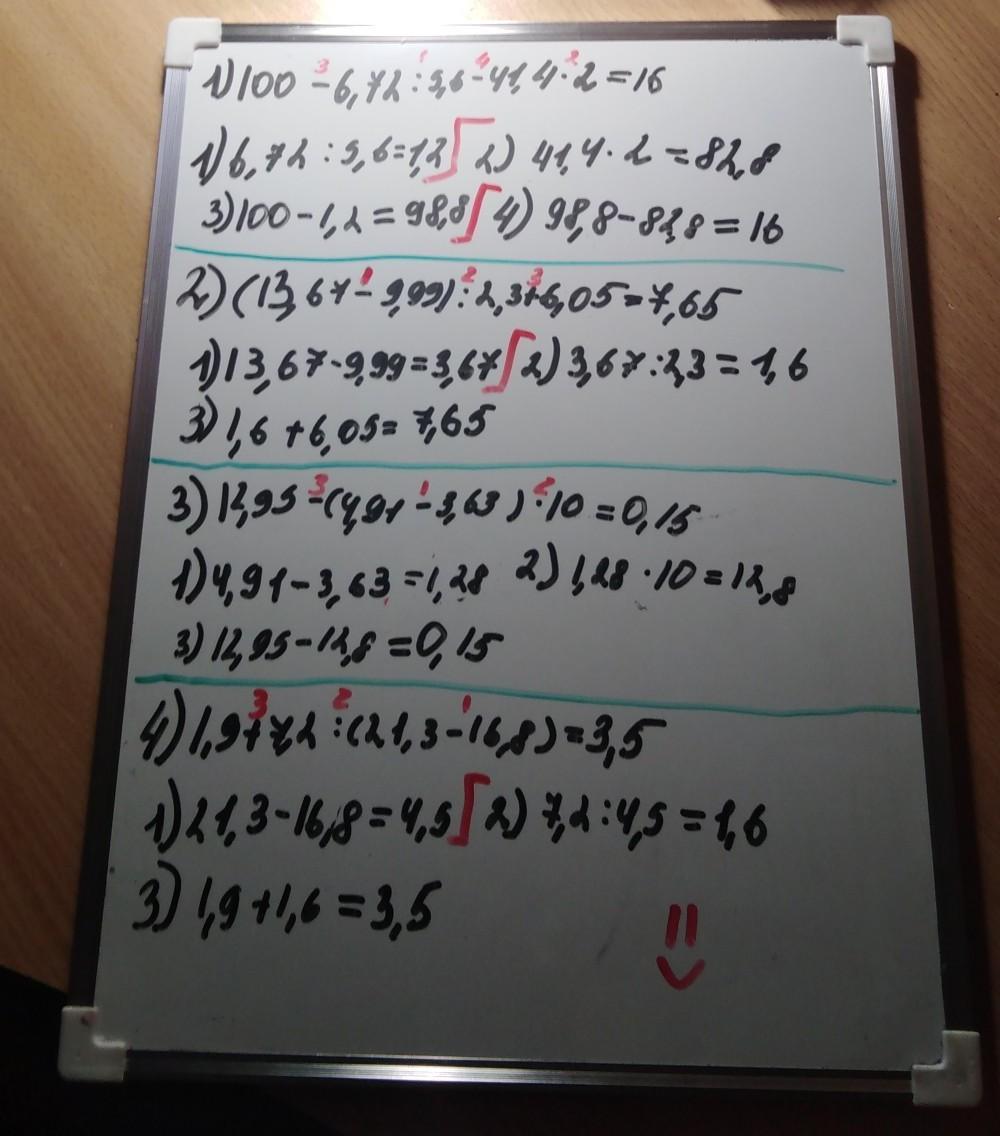 1) 100 - 6,72 : 5,6 - 41,4 · 2 = 16
3 1 4 2
1) 6,72 : 5,6 = 1,2 2) 41,4 · 2 = 82,8
3) 100 - 1,2 = 98,8 4) 98,8 - 82,8 = 16
2) (13,67 - 9,99) : 2,3 + 6,05 = 7,65
1 2 3
1) 13,67 - 9,99 = 3,67 2) 3,67 : 2,3 = 1,6
3) 1,6 + 6,05 = 7,65
3) 12,95 - (4,91 - 3,63) · 10 = 0,15
3 1 2
1) 4,91 - 3,63 = 1,28 2) 1,28 · 10 = 12,8
3) 12,95 - 12,8 = 0,15
4) 1,9 + 7,2 : (21,3 - 16,8) = 3,5
3 2 1
1) 21,3 - 16,8 = 4,5 2) 7,2 : 4,5 = 1,6
3) 1,9 + 1,6 = 3,5